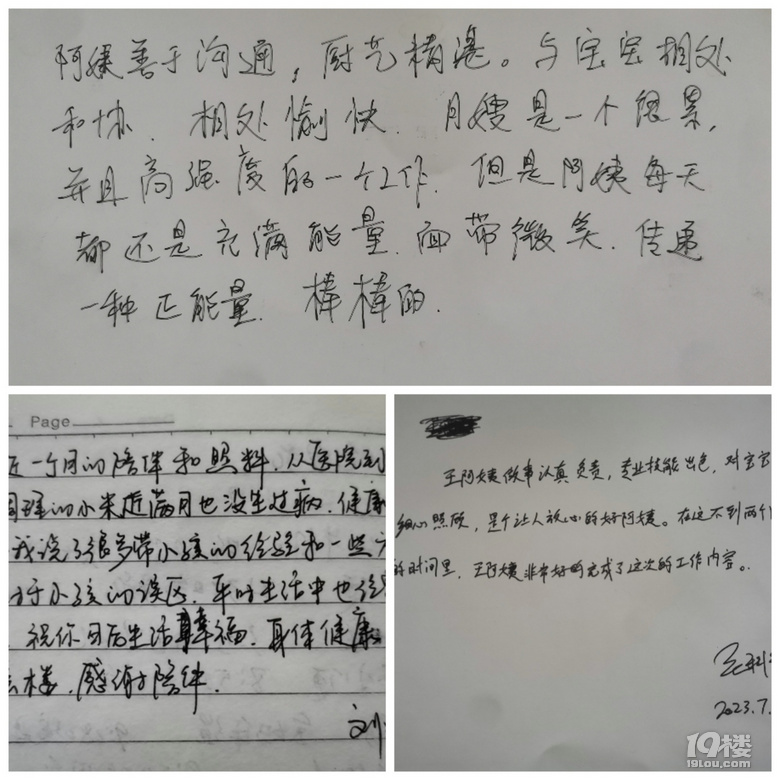 阿姨善于沟通，厨艺精湛。与宝宝相处
和协．相处愉快．月嫂是一个很累，
并且高强度的一个工作．但是阿姨每天
都还是充满能量．面带微笑．传递
一种正能量．棒棒的．
Page
近一个月的陪伴和照料．从医院到
的小米近满月也没生过病．健康
我说了很多带小孩的经验和一些
于小孩的误区．平时生活中也
祝你日后生活幸福．身体健康
楼．感谢陪伴．
刘
王阿姨做事认真负责，专业技能出色，对宝宝
细心照顾，是个让人放心的好阿姨。在这不到两个
的时间里，王阿姨非常好的完成了这次的工作内容。
2023.7.
19楼
19lou.com